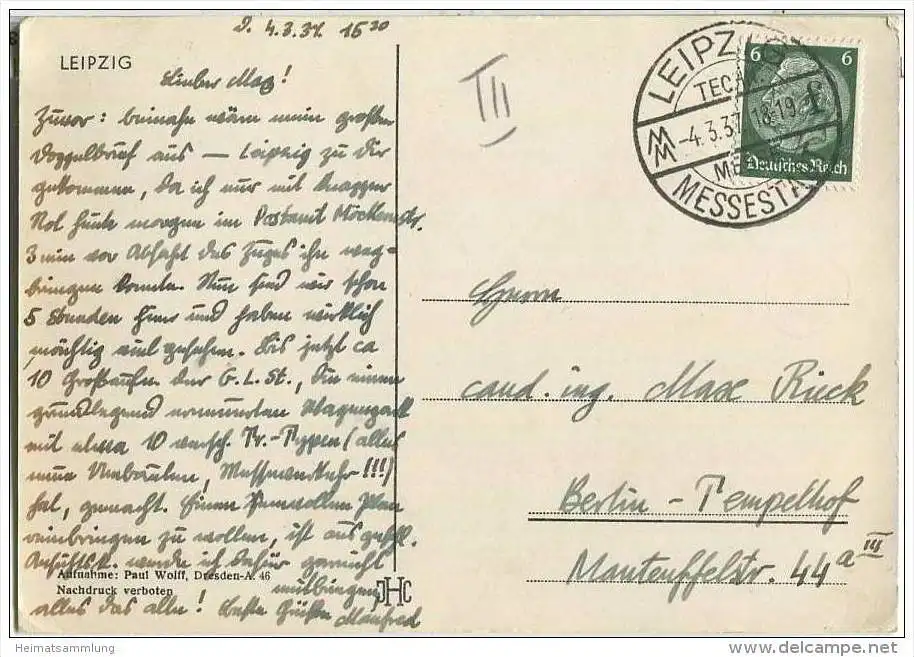 D. 4.3.37. 16 30
LEIPZIG
Lieber Max!
Zuvor: beinahe wäre mein großer
Doppelbrief aus — Leipzig zu Dir
gekommen, da ich nur mit knapper
Not heute morgen im Postamt Möckernstr.
3 min vor Abfahrt des Zuges ihn weg-
bringen konnte. Nun sind wir schon
5 Stunden hier und haben wirklich
mächtig viel gesehen. Bis jetzt ca
10 Großaufn. der G.L.St., die einen
grundlegend erneuerten Wagenpark
mit etwa 10 versch. Tr.-Typen (alles
neue Umbauten, Messeverkehr!!!)
hat, gemacht. Einen
einbringen zu wollen, ist
werde ich dafür
mitbringen
alles das alle! Beste Grüße Manfred
Aufnahme: Paul Wolff, Dresden-A. 46
Nachdruck verboten
JHC
III
LEIPZIG
-4.3.37 18-19
MM
MESSESTADT
6 6
Deutsches Reich
Herrn
cand. ing. Max Rück
Berlin-Tempelhof
Manteuffelstr. 44a III
Heimatsammlung
www.delcampe.net